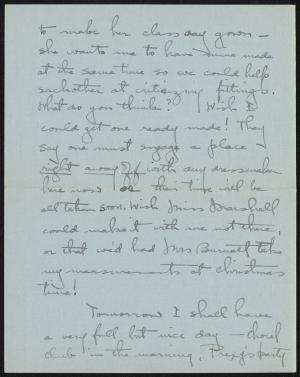 to make her class day gown —
she wants me to have mine made
at the same time so we could help
eachother at criticizing fittings.
What do you think? Wish I
could get one ready made! They
say one must engage a place
right away off with any dressmaker
here now or their time will be
all taken soon. Wish Miss Marshall
could make it with me not there,
or that we'd had Mrs Burnett take
my measurements at Christmas
time!
Tomorrow I shall have
a very full but nice day — choral
club in the morning, Prexy's party